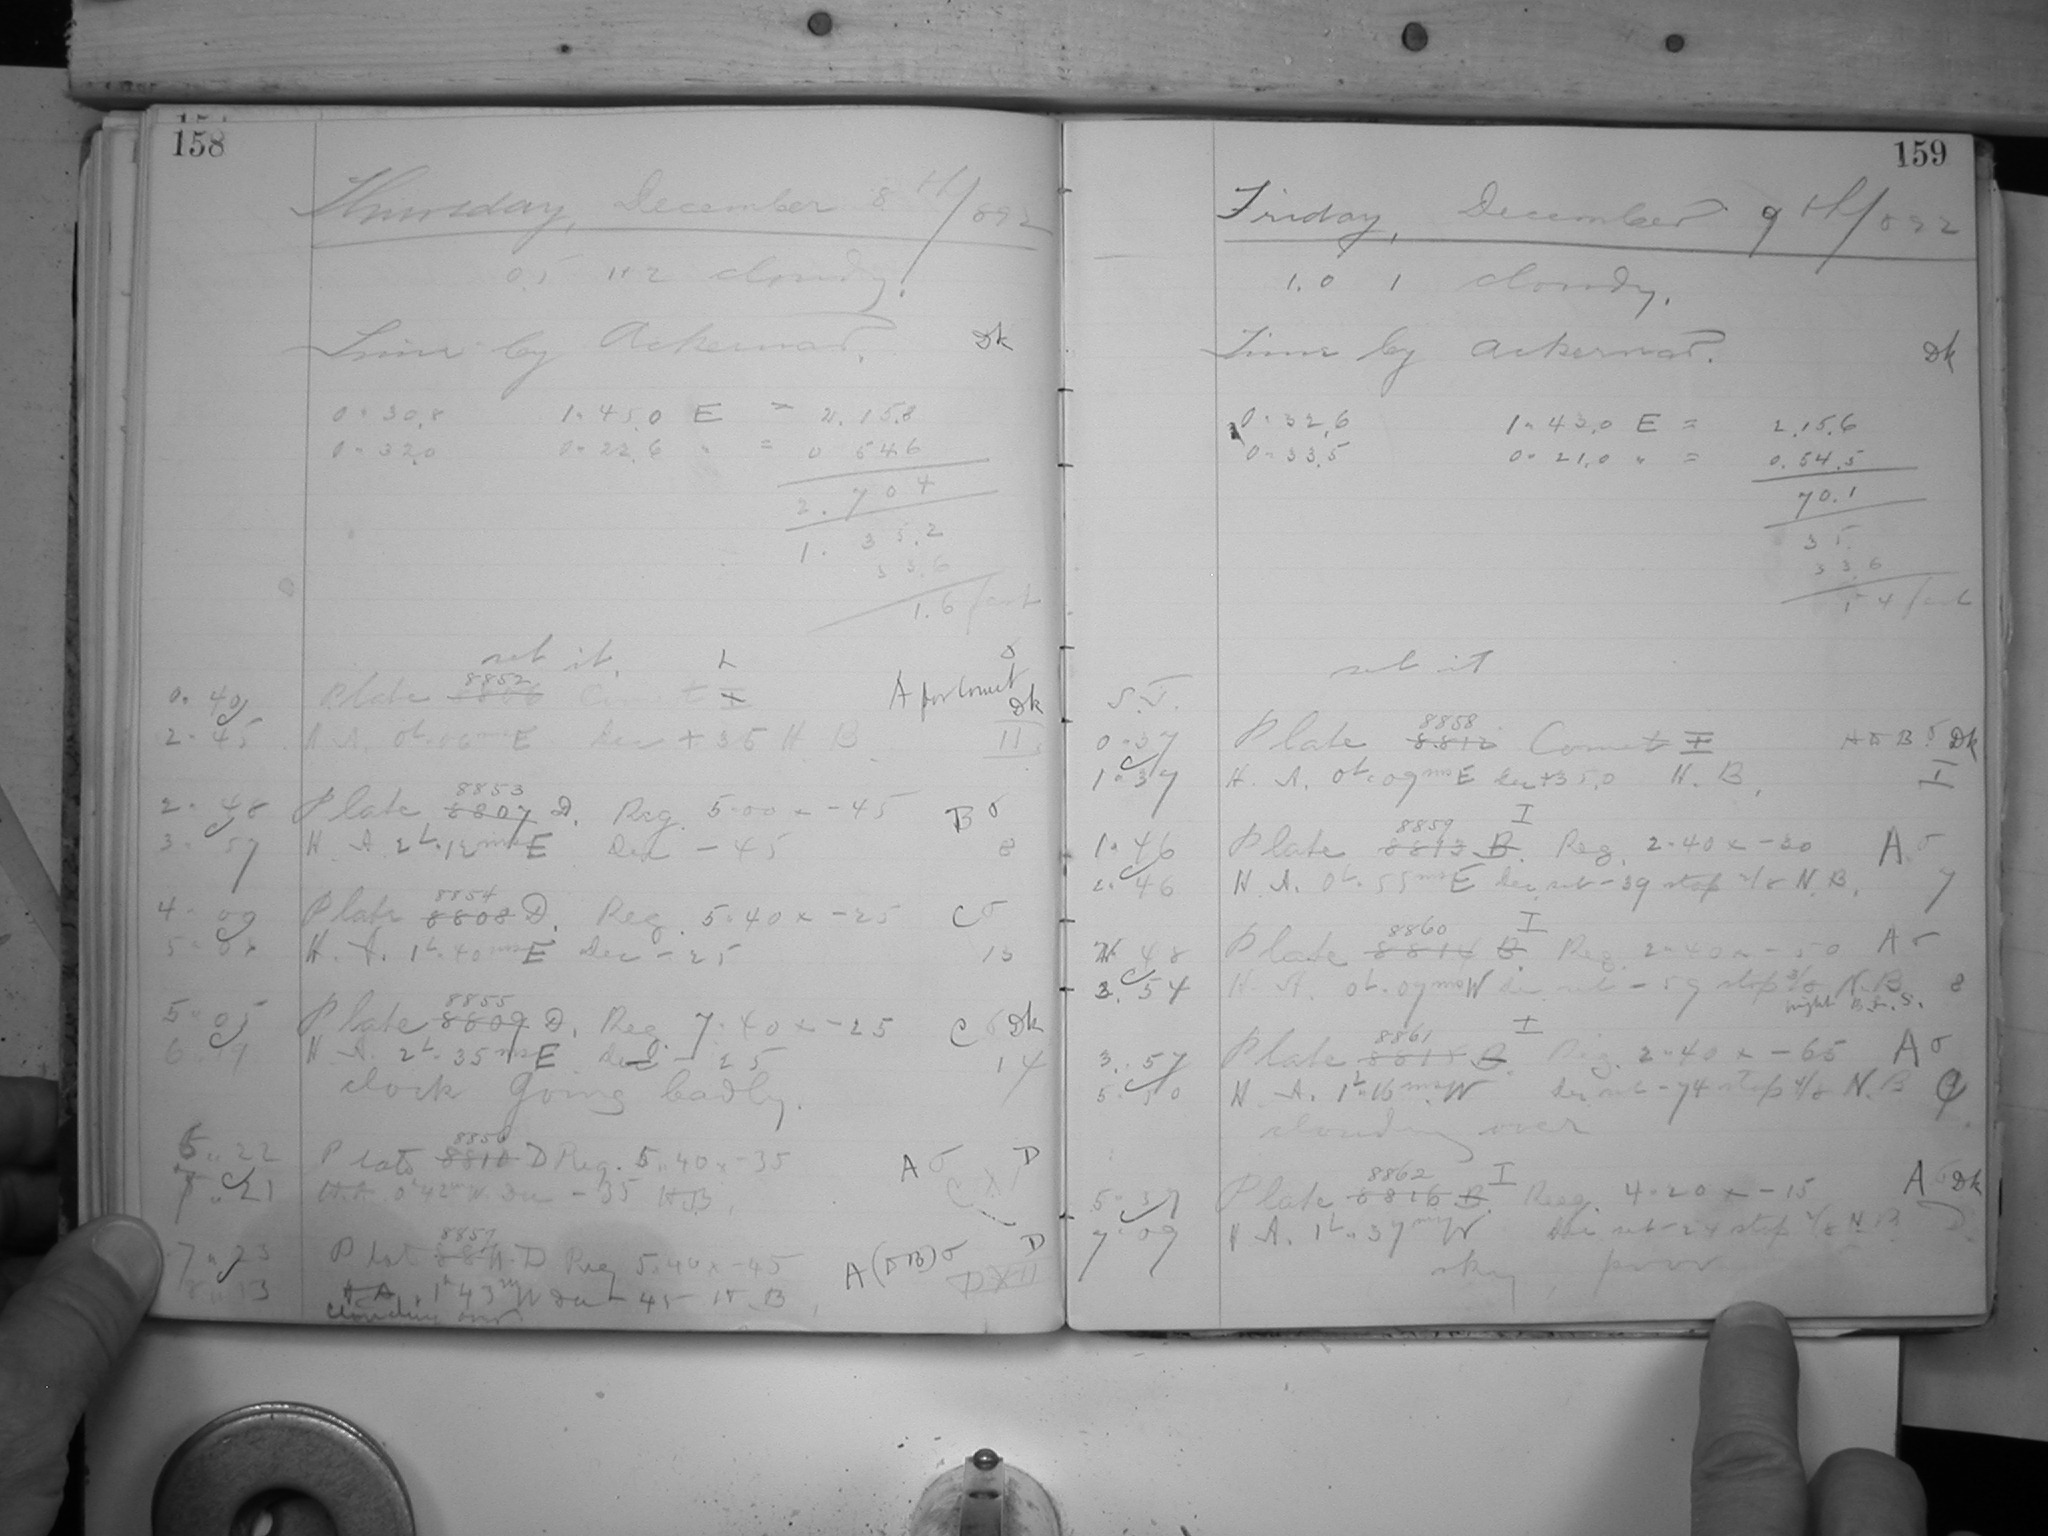 158
Thursday, December 8th/892
0.5 cloudy.
Time by Ackernar. Dk
0.30.8 1.45.0 E = 2.15.8
0.32.0 0.22.6 " = 0 54.6
2.70.4
1.35.2
33.6
1.6 fast
set it.
8852
0.40 Plate 8806 Comet I A for Comet Dk
2.45 H.A. 0h.06ms E Dec + 35 H B 11
8853
2.48 Plate 8807 D. Reg. 5.00 x -45 B σ
3.57 H.A. 2h.12ms E Dec -45 8
8854
4.09 Plate 8808 D. Reg. 5.40 x -25 C σ
5.08 H.A. 1h.40ms E Dec -25 13
8855
5.05 Plate 8809 D. Reg. 7.40 x -25 C σ Dk
H.A. 2h.35ms E dec - 25 14
clock going badly.
8856
6.22 Plate 8810 D Reg. 5.40 x -35 A σ D
7.21 H.A. 0h42m W. Dec -35 H.B.
8857
7.23 Plate 8811 D Reg 5.40 x -45 A (DB) σ D
H.A. 1h43m W Dec -45 H.B.
clouding over
159
Friday, December 9th/892
1.0 1 cloudy.
Time by Ackernar. Dk
0.32.6 1.43.0 E = 2.15.6
0.33.5 0.21.0 " = 0.54.5
70.1
35.
33.6
1.4 fast
set it
S.T.
8858
0.37 Plate 8812 Comet I A D B σ Dk
1.37 H.A. 0h.09ms E dec +35.0 H.B. I
8859 I
1.46 Plate 8813 B. Reg. 2.40 x -30 A σ
2.46 H.A. 0h.55ms E dec set -39 stop 2/8 N.B. 7
8860 I
2.48 Plate 8814 B. Reg. 2.40 x -50 A σ
3.54 H.A. 0h.09ms W dec set -59 stop 3/8 N.B. 8
might B.F.S.
8861 I
3.57 Plate 8815 B. Reg. 2.40 x -65 A σ
5.30 H.A. 1h.16ms W Dec set -74 stop 4/8 N.B 9
clouding over
8862 I
5.37 Plate 8816 B. Reg. 4.20 x -15 A σ Dk
7.09 H.A. 1h.37ms W Dec set -24 stop 2/8 N.B.
sky poor